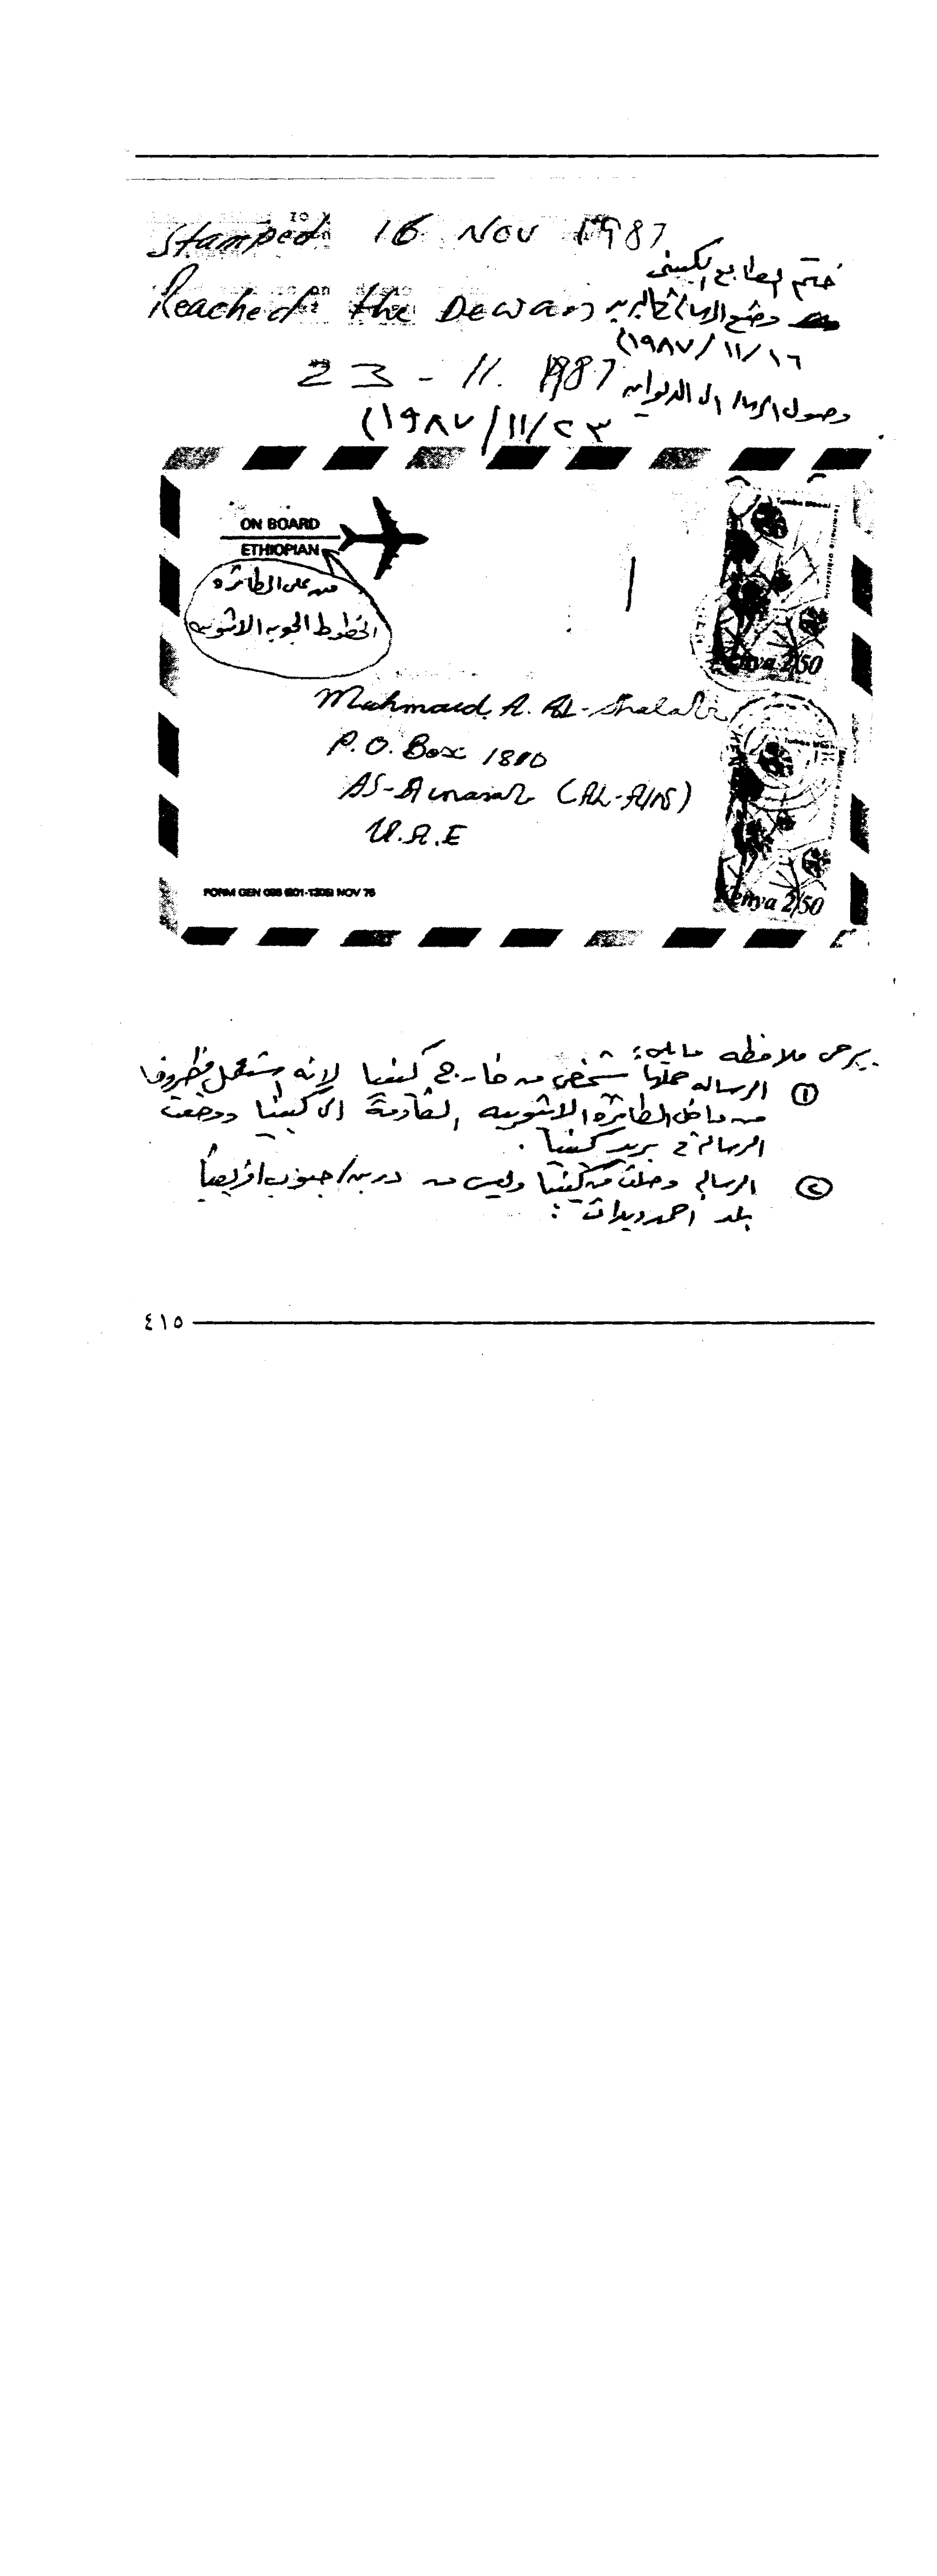 Stamped 16 Nov 1987
ختم الطابع الكيني
Reached the Dewan
وضع الرسالة في البريد
١٩٨٧/١١/١٦)
23 - 11. 1987
وصول الرسالة الى الديوان
١٩٨٧/١١/٢٣)
ON BOARD
ETHIOPIAN
من على الطائره
الخطوط الجويه الاثيوبيه
Kenya 2/50
Mahmoud. A. AL-Shalabi
P.O. Box 1810
(AL-AIN)
U.A.E
Kenya 2/50
FORM GEN NOV 75
يرجى ملاحظة مايلي:
① الرساله حملها شخص من خارج كينيا لانه استعمل ظروفا
من داخل الطائره الاثيوبيه القادمة الى كينيا ووضعت
الرسالة في بريد كينيا.
② الرساله وصلت من كينيا وليس من دربن/جنوب افريقيا
بلد احمد ديدات:
٤١٥